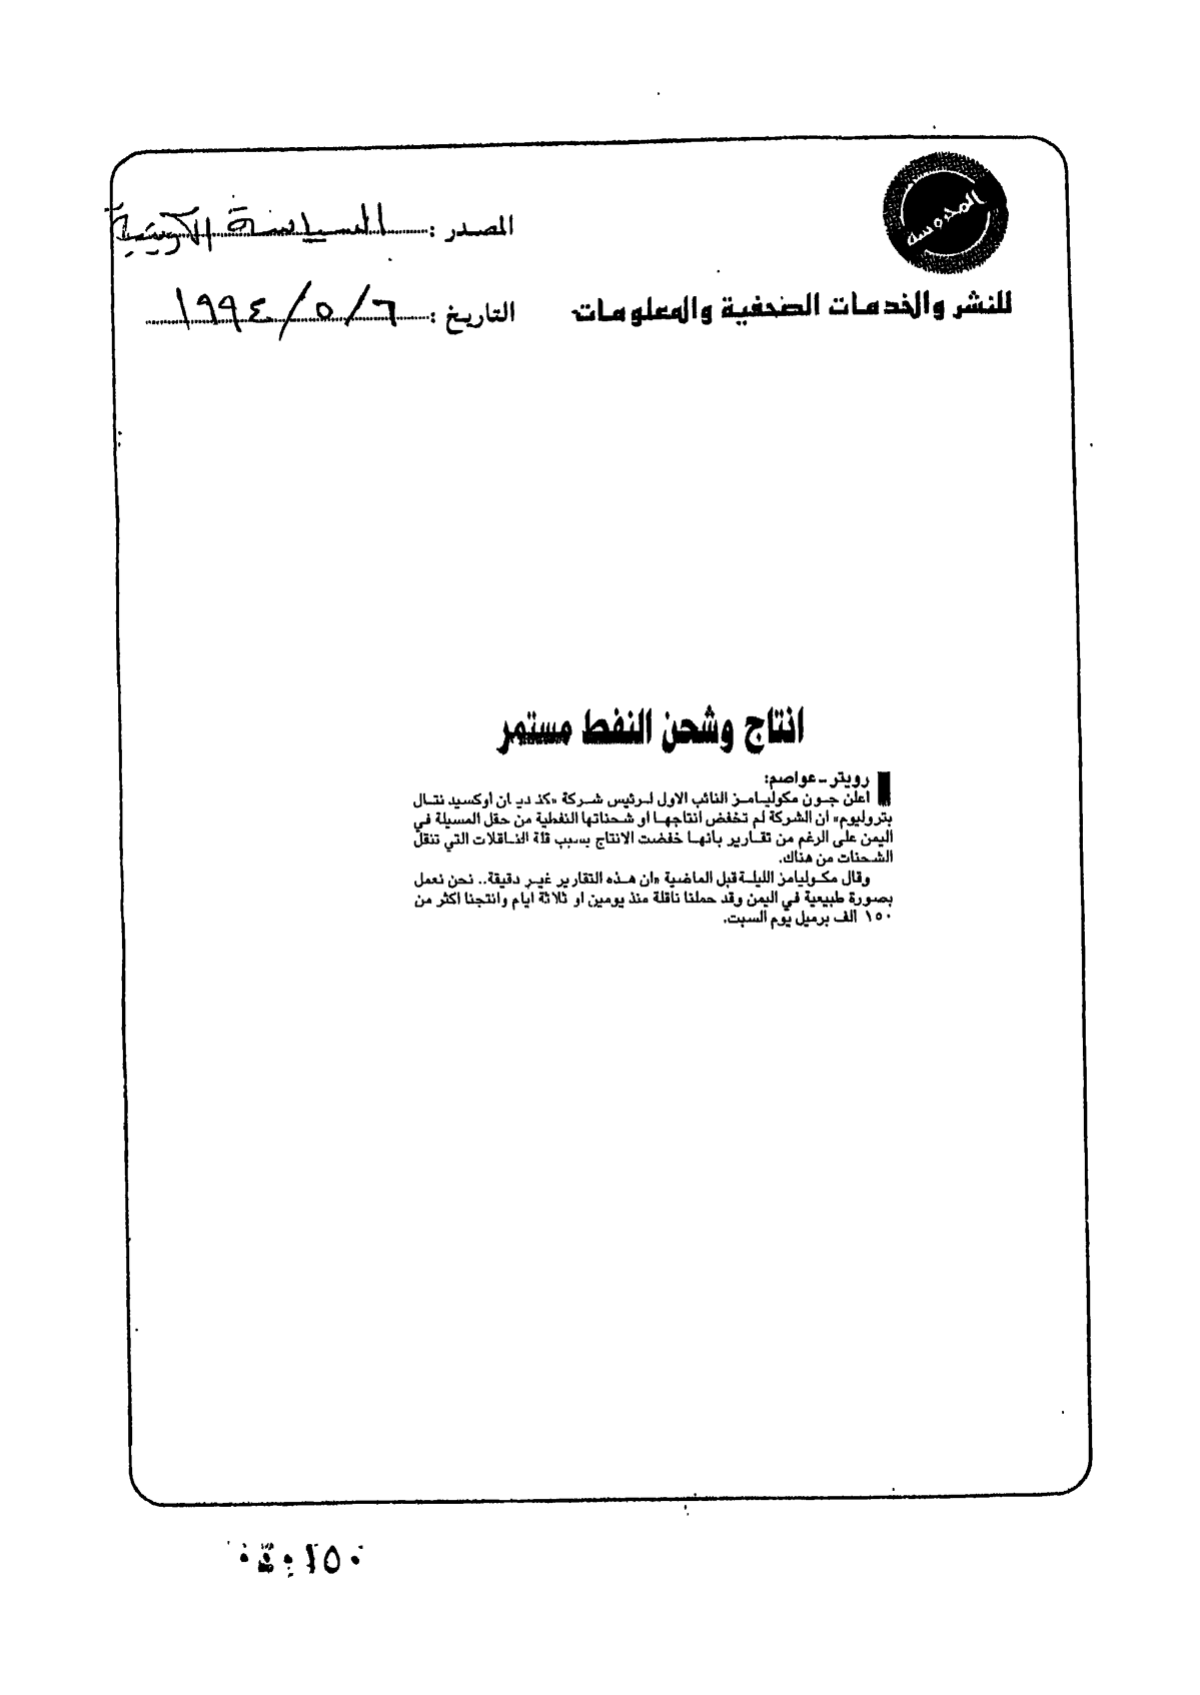 المحروسة
المصدر : السياسة الكويتية
للنشر والخدمات الصحفية والمعلومات
التاريخ : ٦ / ٥ / ١٩٩٤
انتاج وشحن النفط مستمر
رويتر - عواصم:
اعلن جون مكوليامز النائب الاول لرئيس شركة «كنديان أوكسيدنتال
بتروليوم» ان الشركة لم تخفض انتاجها او شحناتها النفطية من حقل المسيلة في
اليمن على الرغم من تقارير بانها خفضت الانتاج بسبب قلة الناقلات التي تنقل
الشحنات من هناك.
وقال مكوليامز الليلة قبل الماضية «ان هذه التقارير غير دقيقة.. نحن نعمل
بصورة طبيعية في اليمن وقد حملنا ناقلة منذ يومين او ثلاثة ايام وانتجنا اكثر من
١٥٠ الف برميل يوم السبت.